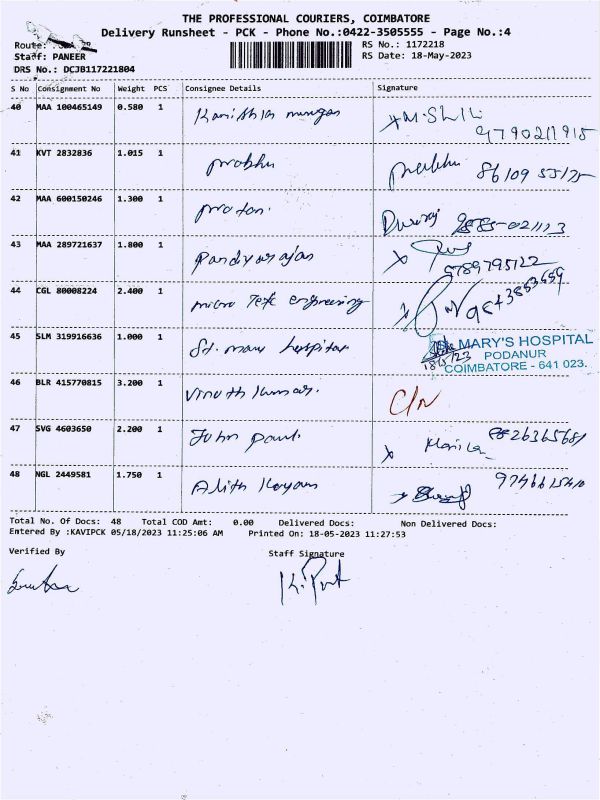 THE PROFESSIONAL COURIERS, COIMBATORE
Delivery Runsheet - PCK - Phone No.:0422-3505555 - Page No.:4
Route:
RS No.: 1172218
Staff: PANEER
RS Date: 18-May-2023
DRS No.: DCJB117221804
S No Consignment No Weight PCS Consignee Details Signature
40 MAA 100465149 0.580 1
9790211915
41 KVT 2832836 1.015 1 Prabhu Prabhu 86109 55125
42 MAA 600150246 1.300 1 2885-021113
43 MAA 289721637 1.800 1 Pandiyarajan
9789795122
44 CGL 80008224 2.400 1 micro Tek engineering
45 SLM 319916636 1.000 1 St. mary hospital
MARY'S HOSPITAL
18/5/23 PODANUR
COIMBATORE - 641 023.
46 BLR 415770815 3.200 1 Vinoth kumar. C/N
47 SVG 4603650 2.200 1 John paul.
48 NGL 2449581 1.750 1
Total No. Of Docs: 48 Total COD Amt: 0.00 Delivered Docs: Non Delivered Docs:
Entered By :KAVIPCK 05/18/2023 11:25:06 AM Printed On: 18-05-2023 11:27:53
Verified By Staff Signature